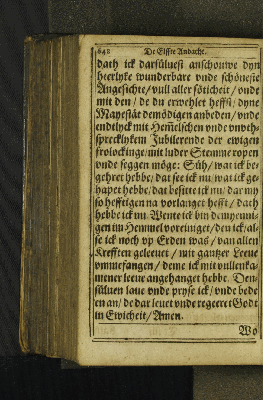 648 De Elffte Andacht.
dath ick darsüluest anschouwe dyn
hierlyke wunderbare vnde schöneste
Angesichte / vull aller söticheit / vnde
mit den / de du erwehlet heffst / dyne
Mayestät demödigen anbeden / vnde
endtlyck mit Hemelschen vnde vnuth-
sprecklykem Jubilerende der ewigen
frolockinge / mit luder Stemme ropen
vnde seggen möge: Süh / wat ick be-
gehret hebbe / dat see ick nu / wat ick ge-
hapet hebbe / dat besitte ick nu / dar my
so hefftigen na vorlanget hefft / dath
hebbe ick nu. Wente ick bin demyenni-
gen im Hemmel voreiniget / den ick / al-
se ick noch vp Erden was / van allen
Krefften geleeuet / mit gantzer Leeue
vmmefangen / deme ick mit vullenka-
mener leeue angehanget hebbe. Den-
süluen laue vnde pryse ick / vnde bede
en an / de dar leuet vnde regeret Godt
in Ewicheit / Amen.
Wo